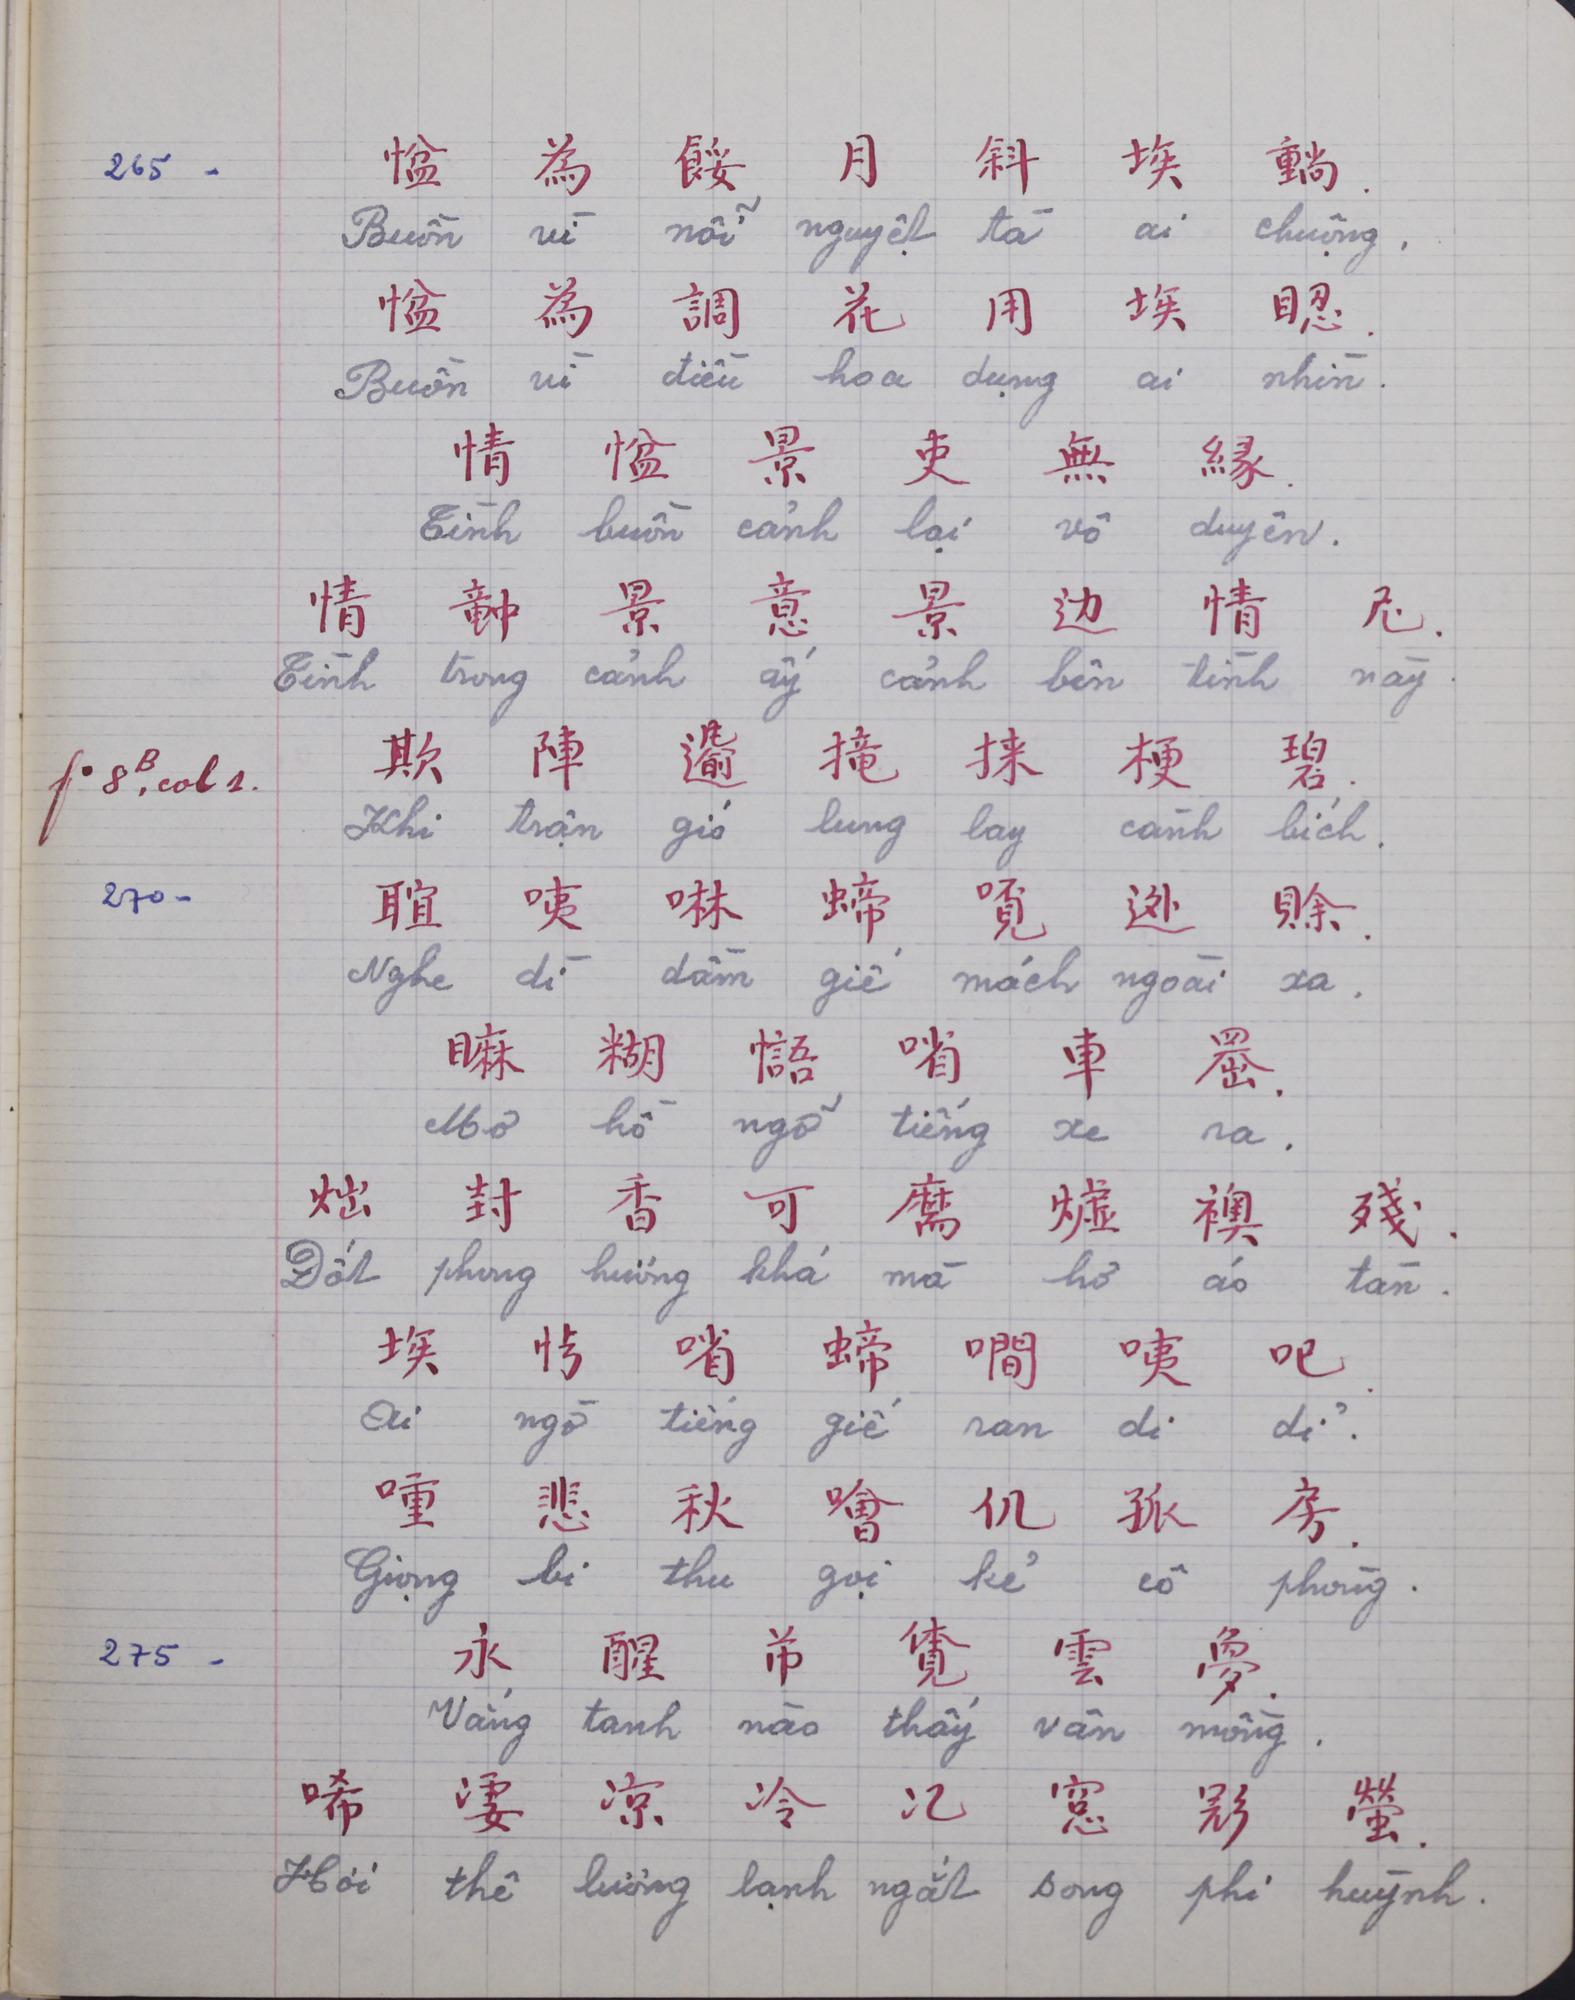 265 - 㥪 為 餒 月 斜 埃 𨤮.
Buồn vì nỗi nguyệt tà ai chuộng,
㥪 為 調 花 用 埃 𥆾.
Buồn vì điều hoa dụng ai nhìn.
情 㥪 景 吏 無 緣.
Tình buồn cảnh lại vô duyên.
情 𥪞 景 意 景 边 情 尼.
Tình trong cảnh ấy cảnh bên tình này.
f. 8B, col 1. 欺 陣 𨔍 掩 𢯦 梗 碧.
Khi trận gió lung lay cành bích.
270 - 𦖑 咦 啉 蝭 𠶜 逊 賒.
Nghe dì dầm giế mách ngoài xa.
𥊚 糊 𢢯 㗂 車 𦋦.
Mơ hồ ngỡ tiếng xe ra.
炪 封 香 可 𢟔 爐 襖 殘.
Đốt phong hương khá mà hơ áo tàn.
埃 㤕 㗂 蝭 㗴 咦 吧.
Ai ngờ tiếng giế ran di dỉ.
喠 悲 秋 噲 仉 孤 房.
Giọng bi thu gọi kẻ cô phòng.
275 - 永 醒 芇 覓 雲 夢.
Vắng tanh nào thấy vân mồng.
唏 凄 凉 冷 汔 窓 影 螢.
Hơi thê lương lạnh ngắt song phi huỳnh.